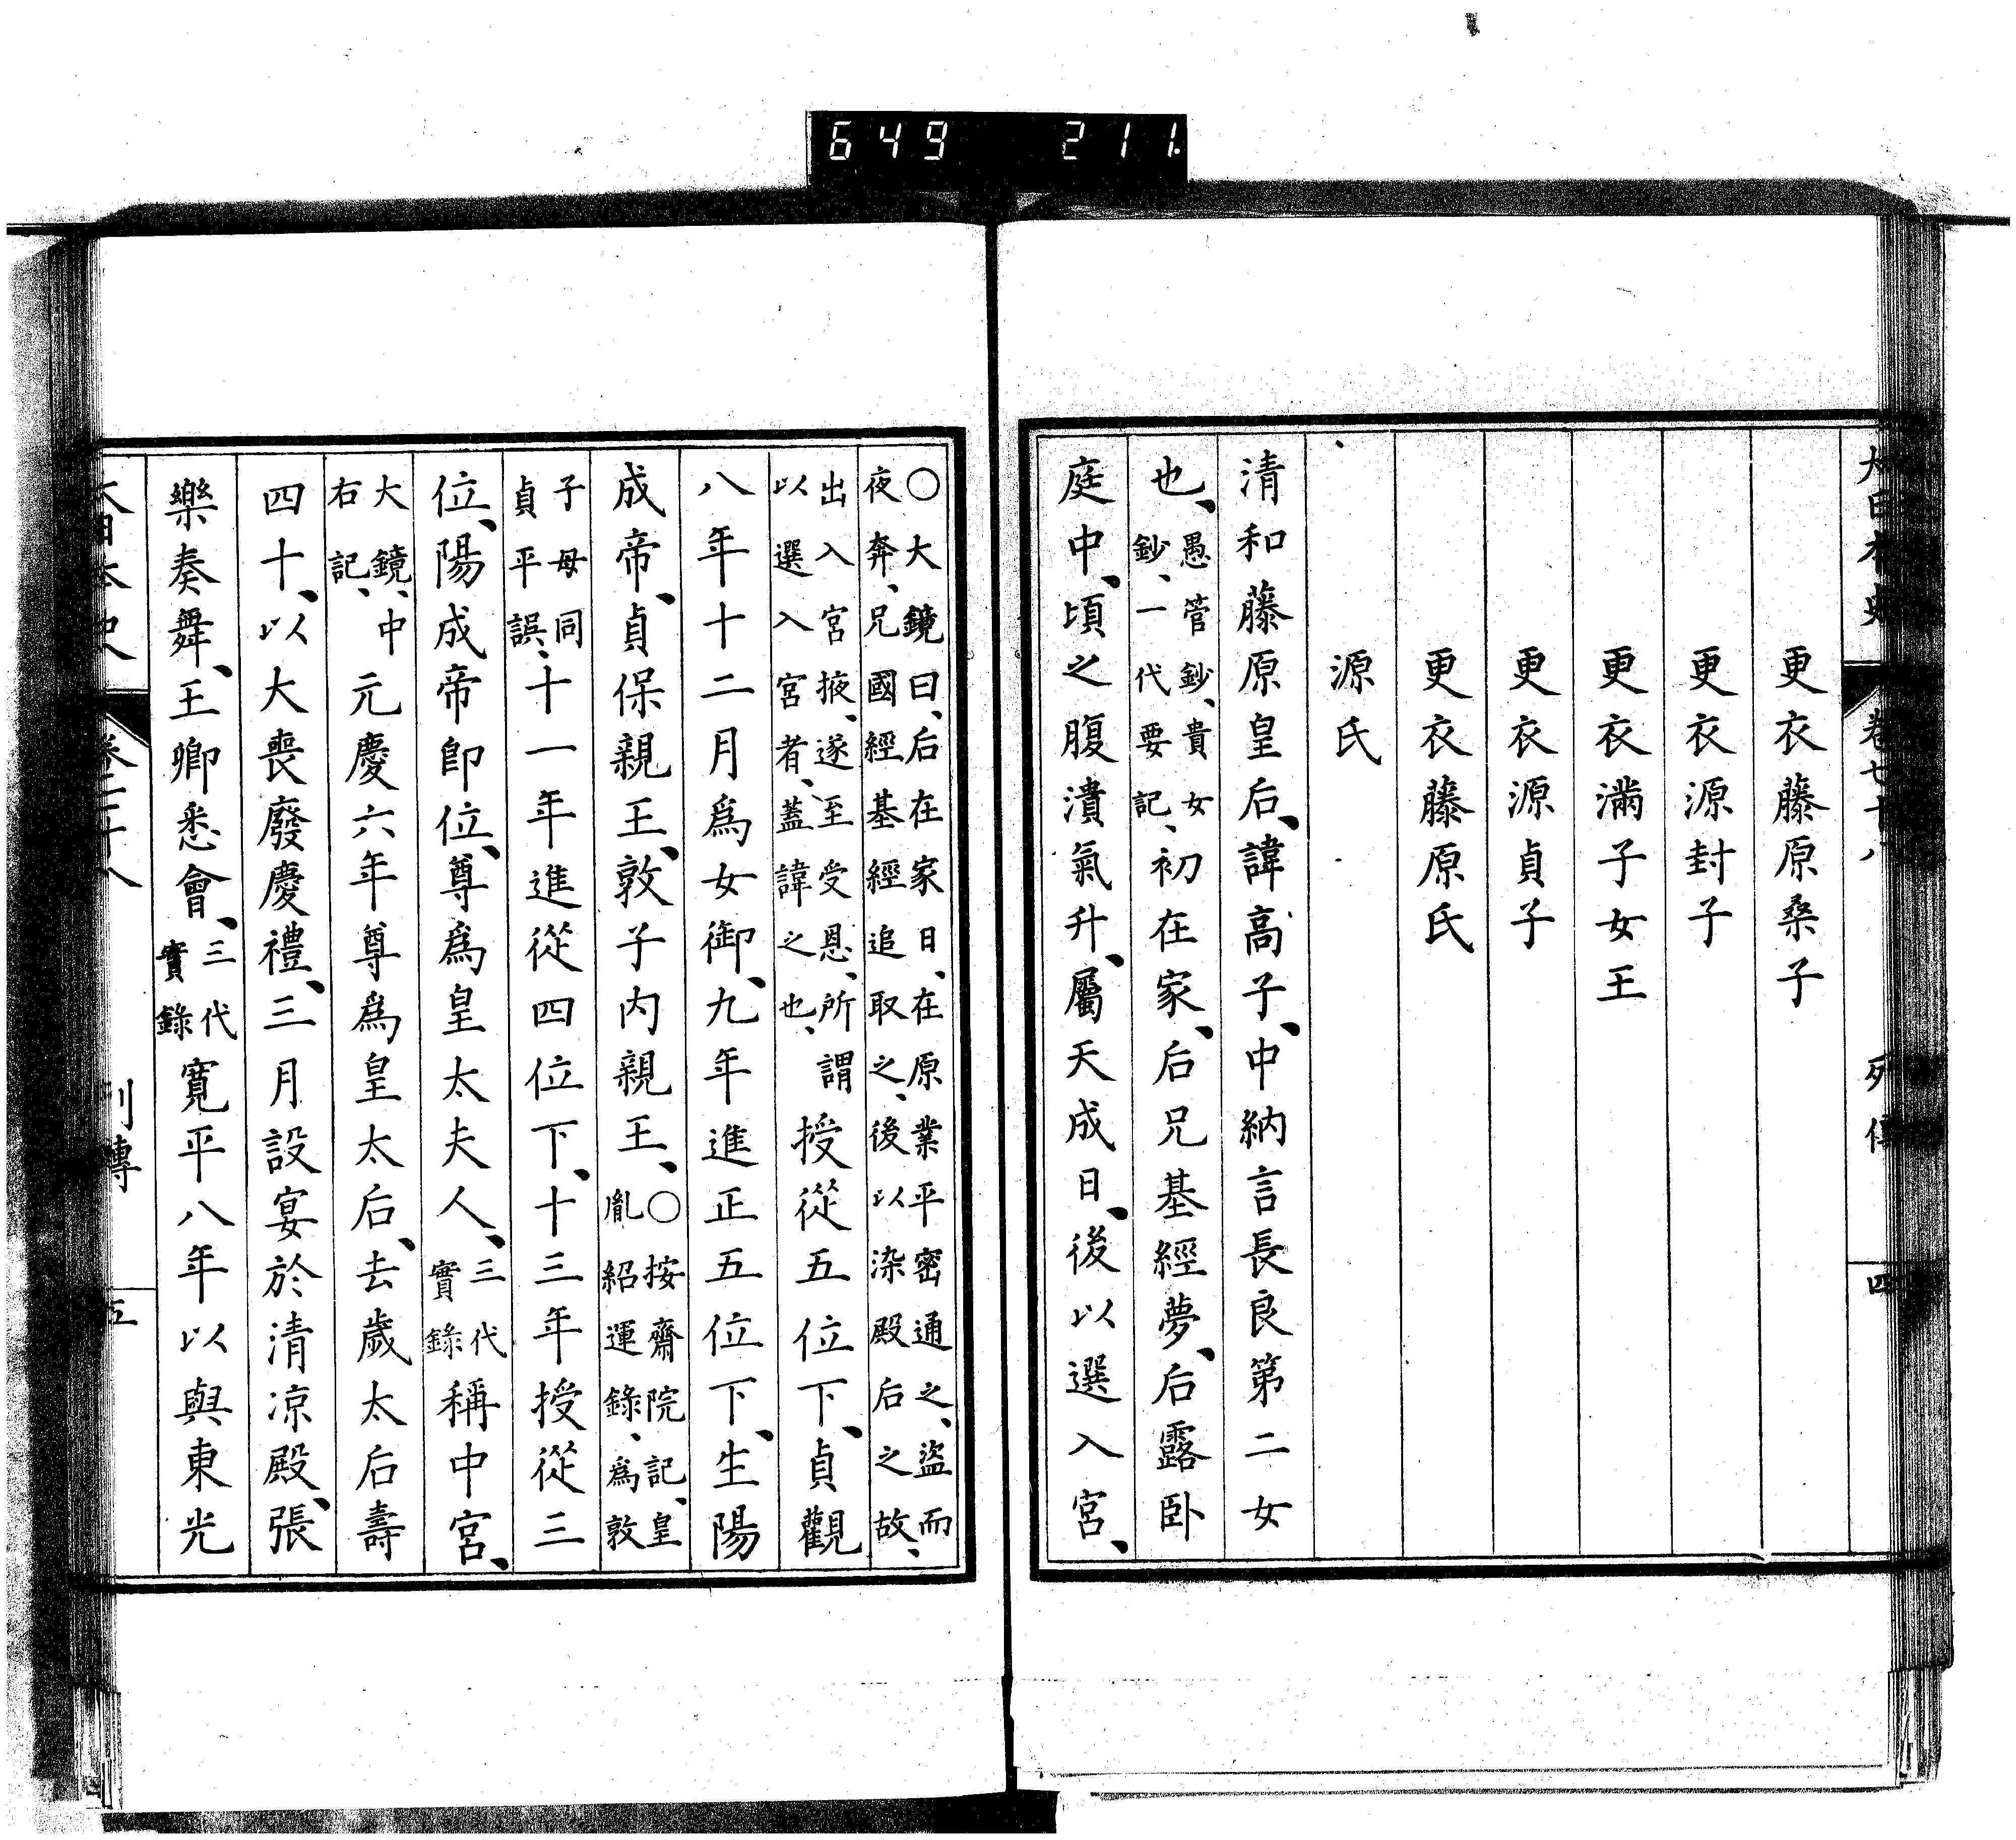 649 211
大日本史 卷七十八 列傳 四
更衣藤原桑子
更衣源封子
更衣滿子女王
更衣源貞子
更衣藤原氏
源氏
清和藤原皇后、諱高子、中納言長良第二女
也、愚管鈔、貴女鈔、一代要記、初在家、后兄基經夢、后露卧
庭中、頃之腹潰氣升、屬天成日、後以選入宮、
○大鏡曰、后在家日、在原業平密通之、盜而
夜奔、兄國經基經追取之、後以染殿后之故、
出入宮掖、遂至受恩、所謂
以選入宮者、蓋諱之也、授從五位下、貞觀
八年十二月為女御、九年進正五位下、生陽
成帝、貞保親王、敦子內親王、○按齋院記、皇胤紹運錄、為敦
子母同貞平誤、十一年進從四位下、十三年授從三
位、陽成帝即位、尊為皇太夫人、三代實錄稱中宮、
大鏡、中右記、元慶六年尊為皇太后、去歲太后壽
四十、以大喪廢慶禮、三月設宴於清凉殿、張
樂奏舞、王卿悉會、三代實錄寬平八年以與東光
大日本史 卷七十八 列傳 五